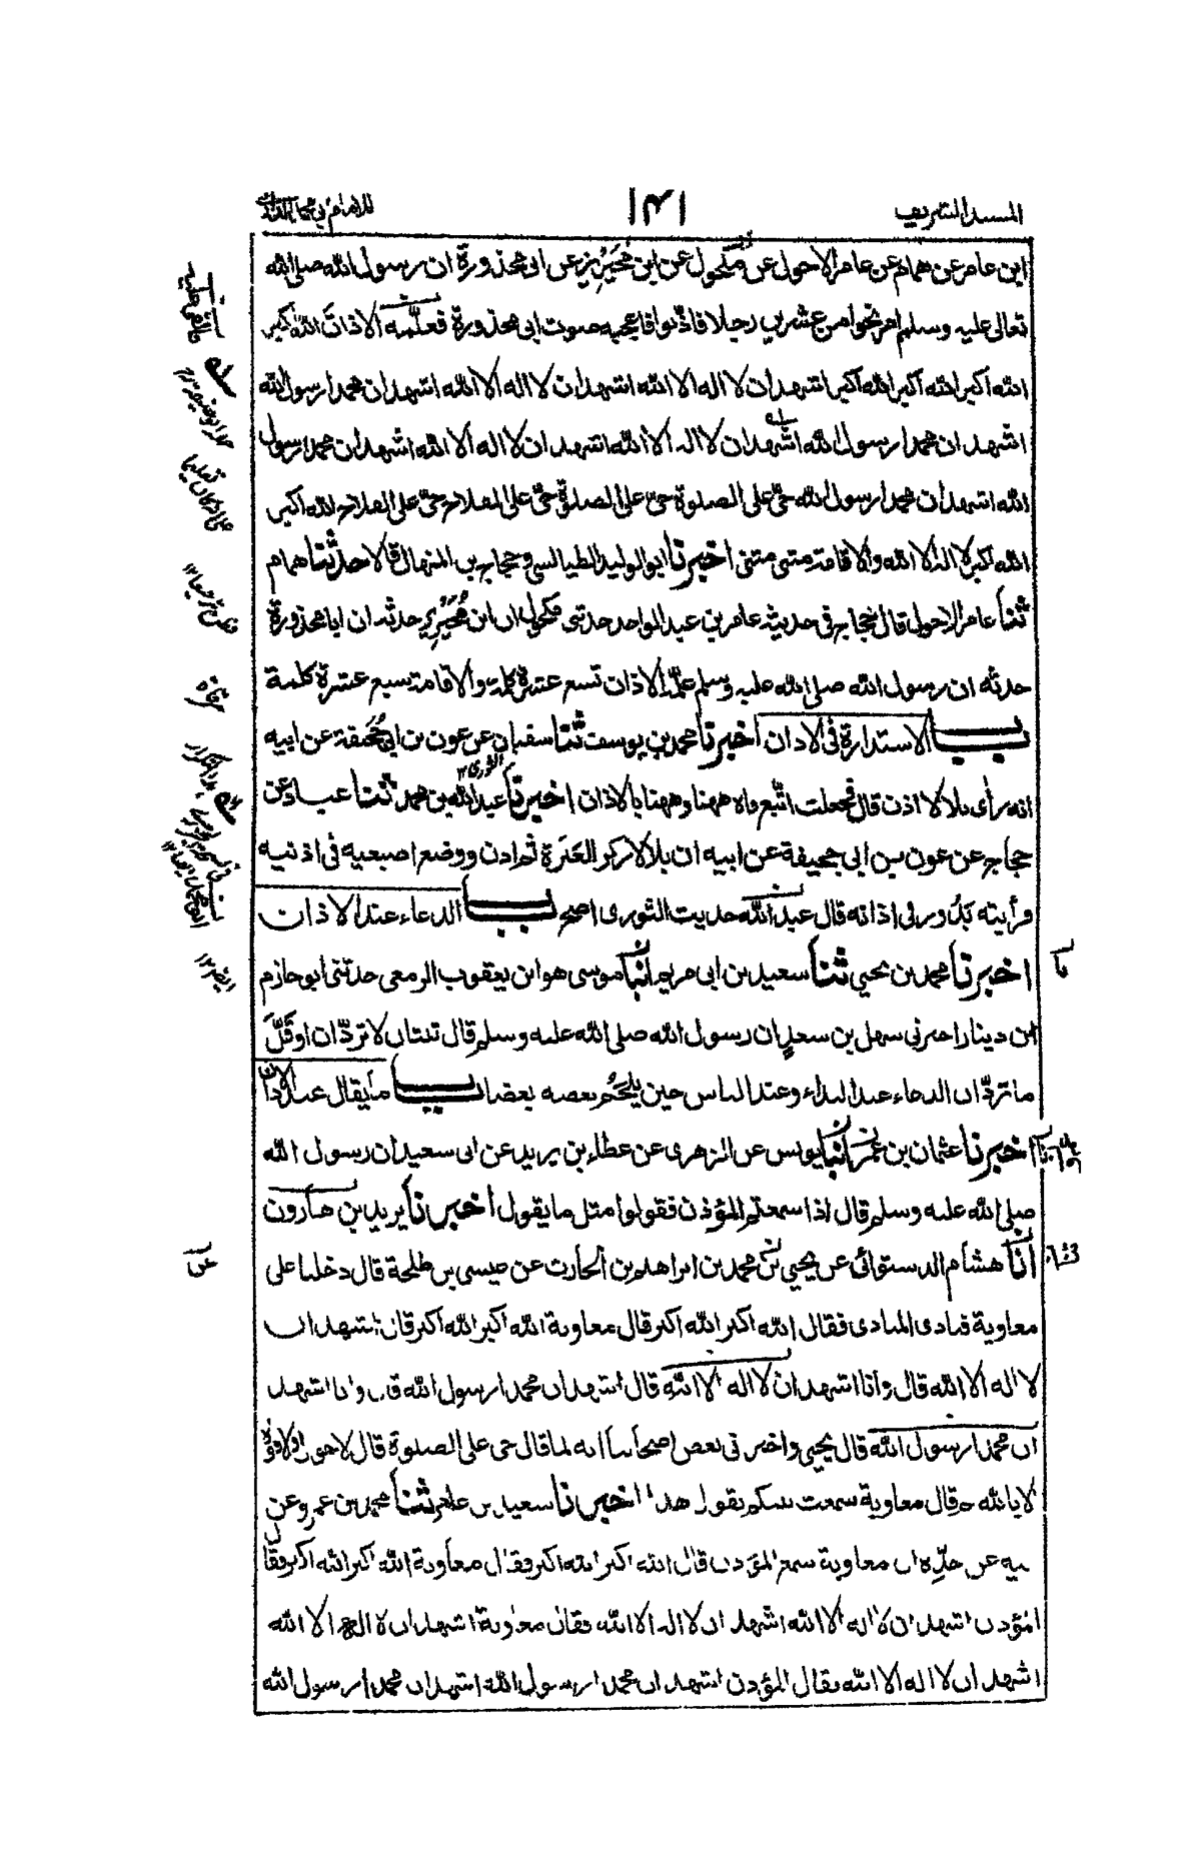 المسند الشريف
١٤١
ابن عامر عن همام عن عامر الاحول عن مكحول عن ابن محيريز عن ابى محذورة ان رسول الله صلى الله
تعالى عليه وسلم امر نحوا من عشرين رجلا فاذنوا فاعجبه صوت ابى محذورة فعلّمه الاذان الله اكبر
الله اكبر الله اكبر الله اكبر اشهد ان لا اله الا الله اشهد ان لا اله الا الله اشهد ان محمدا رسول الله
اشهد ان محمدا رسول الله اشهد ان لا اله الا الله اشهد ان لا اله الا الله اشهد ان محمدا رسول
الله اشهد ان محمدا رسول الله حىّ على الصلوة حىّ على الصلوة حىّ على الفلاح حىّ على الفلاح الله اكبر
الله اكبر لا اله الا الله والاقامة مثنى مثنى اخبرنا ابو الوليد الطيالسى وحجاج بن المنهال قالا حدثنا همام
ثنا عامر الاحول قال حجاج فى حديثه عامر بن عبد الواحد حدثنى مكحول ان ابن محيريز حدثه ان ابا محذورة
حدثه ان رسول الله صلى الله عليه وسلم علّمه الاذان تسع عشرة كلمة والاقامة سبع عشرة كلمة
باب الاستدارة فى الاذان اخبرنا محمد بن يوسف ثنا سفيان عن عون بن ابى جُحَيفة عن ابيه
الثورى ١٢
انه رأى بلالا اذن قال فجعلت اتّبع فاه ههنا وههنا بالاذان اخبرنا عبد الله بن محمد ثنا عباد عن
حجاج عن عون بن ابى جحيفة عن ابيه ان بلالا ركز العَنَزة ثم اذن ووضع اصبعيه فى اذنيه
فرأيته يَدُور فى اذانه قال عبد الله حديث الثورى اصح باب الدعاء عند الاذان
اخبرنا محمد بن يحيى ثنا سعيد بن ابى مريم انبأ موسى هو ابن يعقوب الزمعى حدثنى ابو حازم
ابن دينار اخبرنى سهل بن سعدٍ ان رسول الله صلى الله عليه وسلم قال ثنتان لا تردّان او قَلّ
ما تردّان الدعاء عند النداء وعند الباس حين يلحم بعضه بعضا باب ما يقال عند الاذان
اخبرنا عثمان بن عمر انبأ يونس عن الزهرى عن عطاء بن يزيد عن ابى سعيد ان رسول الله
صلى الله عليه وسلم قال اذا سمعتم المؤذن فقولوا مثل ما يقول اخبرنا يزيد بن هارون
انا هشام الدستوائى عن يحيى عن محمد بن ابراهيم بن الحارث عن عيسى بن طلحة قال دخلنا على
معاوية فنادى المنادى فقال الله اكبر الله اكبر قال معاوية الله اكبر الله اكبر قال اشهد ان
لا اله الا الله قال وانا اشهد ان لا اله الا الله قال اشهد ان محمدا رسول الله قال وانا اشهد
ان محمدا رسول الله قال يحيى واخبرنى بعض اصحابنا انه لما قال حى على الصلوة قال لا حول ولا قوة
الا بالله ثم قال معاوية سمعت نبيكم يقول هذا اخبرنا سعيد بن عامر ثنا محمد بن عمرو عن
ابيه عن جدّه ان معاوية سمع المؤذن قال الله اكبر الله اكبر فقال معاوية الله اكبر الله اكبر فقال
المؤذن اشهد ان لا اله الا الله اشهد ان لا اله الا الله فقال معاوية اشهد ان لا اله الا الله
اشهد ان لا اله الا الله فقال المؤذن اشهد ان محمدا رسول الله اشهد ان محمدا رسول الله